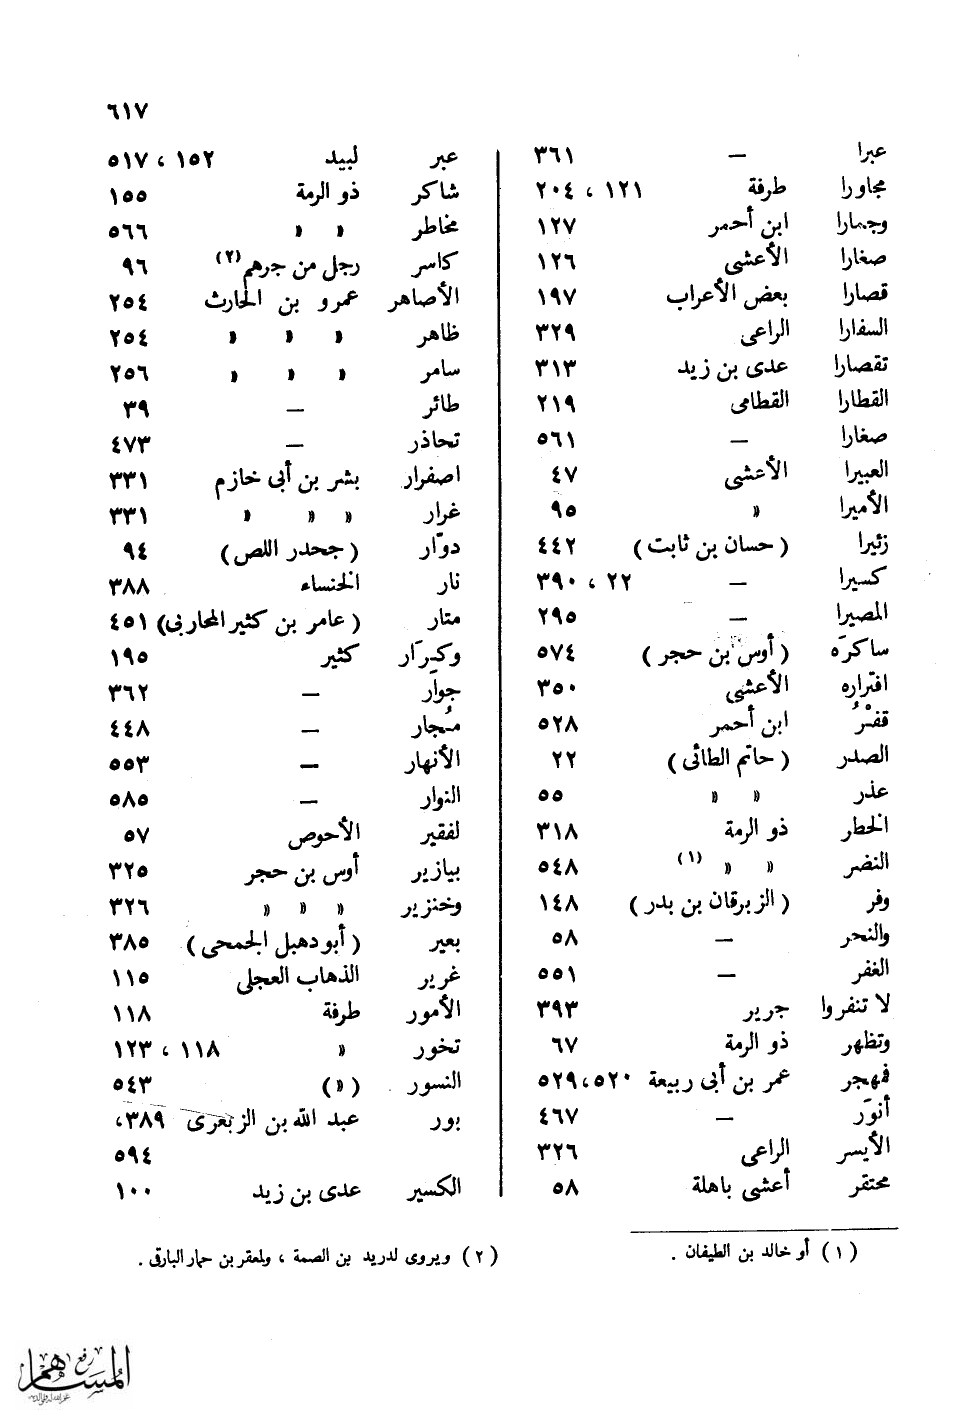 ٦١٧
عبرا — ٣٦١
مجاورا طرفة ١٢١ ، ٢٠٤
وجمارا ابن أحمر ١٢٧
صغارا الأعشى ١٢٦
قصارا بعض الأعراب ١٩٧
السفارا الراعى ٣٢٩
تقصارا عدى بن زيد ٣١٣
القطارا القطامى ٢١٩
صغارا — ٥٦١
العبيرا الأعشى ٤٧
الأميرا » ٩٥
زئيرا ( حسان بن ثابت ) ٤٤٢
كسيرا — ٢٢ ، ٣٩٠
المصيرا — ٢٩٥
ساكرَه ( أوس بن حجر ) ٥٧٤
افتراره الأعشى ٣٥٠
قفْرُ ابن أحمر ٥٢٨
الصدر ( حاتم الطائى ) ٢٢
عذر » » ٥٥
الخطر ذو الرمة ٣١٨
النضر » » (١) ٥٤٨
وفر ( الزبرقان بن بدر ) ١٤٨
والنحر — ٥٨
الغفر — ٥٥١
لا تنفروا جرير ٣٩٣
وتظهر ذو الرمة ٦٧
فمهجر عمر بن أبى ربيعة ٥٢٠،٥٢٩
أنوّر — ٤٦٧
الأيسر الراعى ٣٢٦
محتقر أعشى باهلة ٥٨
عبر لبيد ١٥٢ ، ٥١٧
شاكر ذو الرمة ١٥٥
مخاطر » » ٥٦٦
كاسر رجل من جرهم (٢) ٩٦
الأصاهر عمرو بن الحارث ٢٥٤
ظاهر » » » ٢٥٤
سامر » » » ٢٥٦
طائر — ٣٩
تحاذر — ٤٧٣
اصفرار بشر بن أبى خازم ٣٣١
غرار » » » ٣٣١
دوّار ( جحدر اللص ) ٩٤
نار الخنساء ٣٨٨
متار ( عامر بن كثير المحاربى ) ٤٥١
وكيرَار كثير ١٩٥
جوَار — ٣٦٢
مُجار — ٤٤٨
الأنهار — ٥٥٣
النوار — ٥٨٥
لفقير الأحوص ٥٧
بيازير أوس بن حجر ٣٢٥
وخنزير » » » ٣٢٦
بعير ( أبو دهبل الجمحى ) ٣٨٥
غرير الذهاب العجلى ١١٥
الأمور طرفة ١١٨
تخور » ١١٨ ، ١٢٣
النسور ( » ) ٥٤٣
بور عبد الله بن الزبعرى ٣٨٩،
٥٩٤
الكسير عدى بن زيد ١٠٠
( ١ ) أو خالد بن الطيفان .
( ٢ ) ويروى لدريد بن الصمة ، ولمعقر بن حمار البارقى .